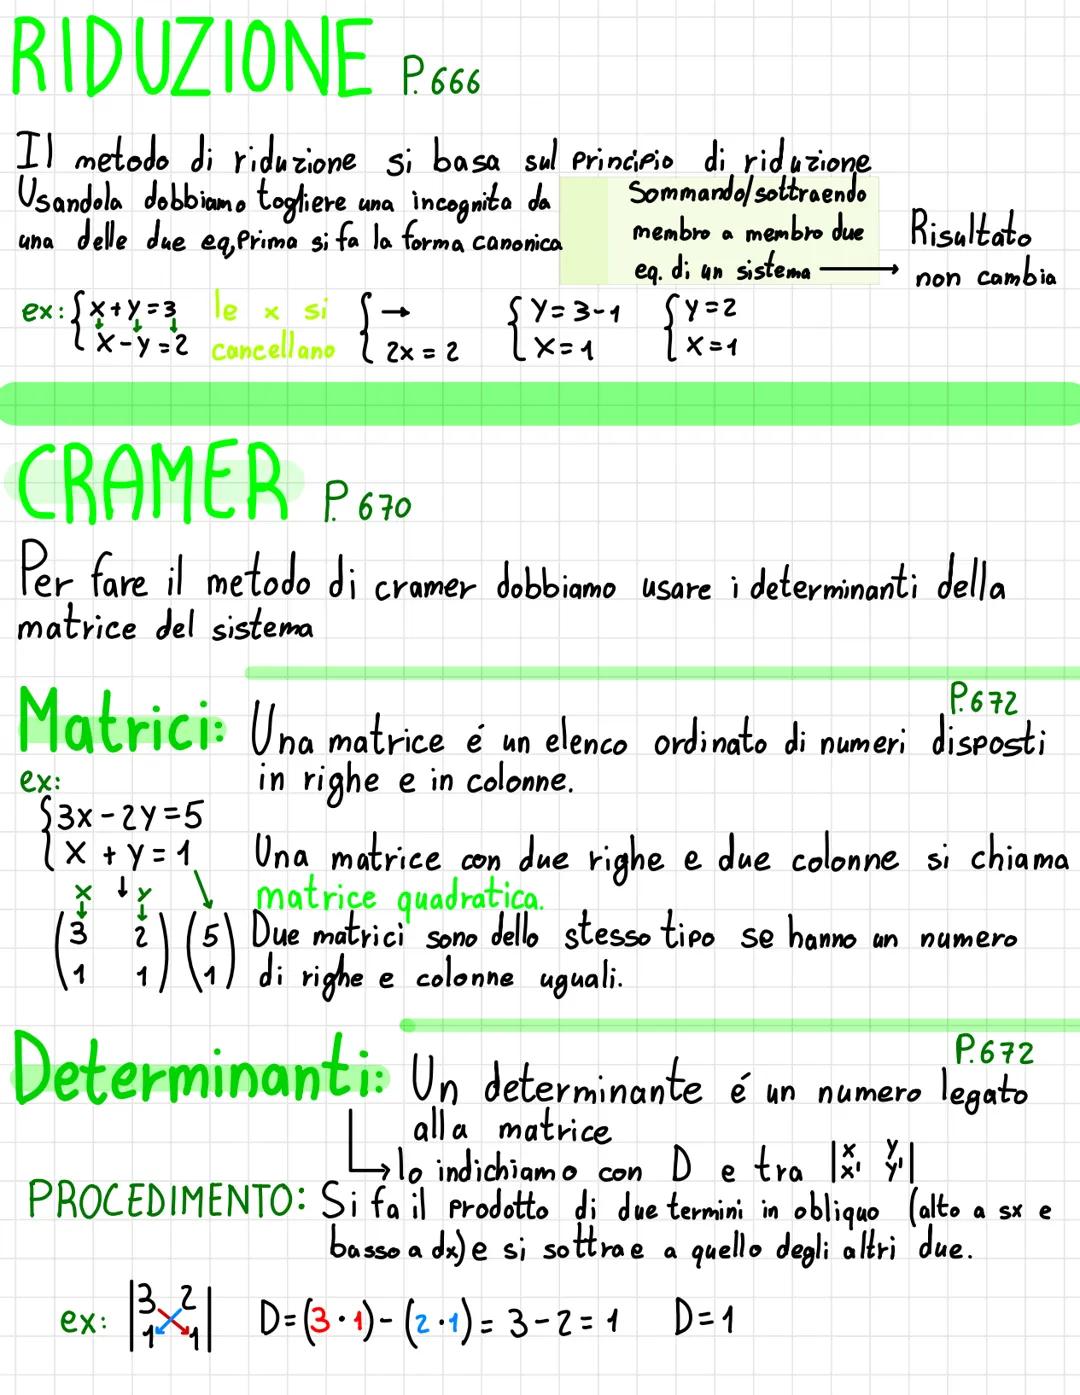 RIDUZIONE P.666
Il metodo di riduzione si basa sul principio di riduzione
Usandola dobbiamo togliere una incognita da
una delle due eq, Prima si fa la forma canonica
Sommando/sottraendo
membro a membro due
eq. di un sistema →
Risultato
non cambia
ex: { x+y=3
x-y=2
le x si
cancellano
{ →
2x=2
{ y=3-1
x=1
{ y=2
x=1
CRAMER P. 670
Per fare il metodo di cramer dobbiamo usare i determinanti della
matrice del sistema
P.672
Matrici: Una matrice é un elenco ordinato di numeri disposti
in righe e in colonne.
ex:
{ 3x-2y=5
x+y=1
Una matrice con due righe e due colonne si chiama
matrice quadratica.
x ↓ y
(3 2) (5)
(1 1) (1)
Due matrici sono dello stesso tipo se hanno un numero
di righe e colonne uguali.
P.672
Determinanti: Un determinante é un numero legato
alla matrice
→ lo indichiamo con D e tra |x y|
|x' y'|
PROCEDIMENTO: Si fa il prodotto di due termini in obliquo (alto a sx e
basso a dx) e si sottrae a quello degli altri due.
ex: |3 2|
|1 1|
D=(3·1)-(2·1)=3-2=1 D=1